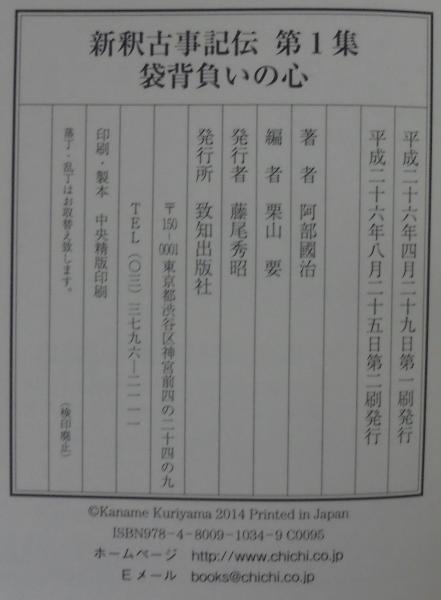 新釈古事記伝 第1集
袋背負いの心
平成二十六年四月二十九日第一刷発行
平成二十六年八月二十五日第二刷発行
著 者 阿部國治
編 者 栗山 要
発行者 藤尾秀昭
発行所 致知出版社
〒150-0001 東京都渋谷区神宮前四の二十四の九
TEL（〇三）三七九六―二一一一
印刷・製本 中央精版印刷
落丁・乱丁はお取替え致します。
（検印廃止）
©Kaname Kuriyama 2014 Printed in Japan
ISBN978-4-8009-1034-9 C0095
ホームページ http://www.chichi.co.jp
Eメール books@chichi.co.jp